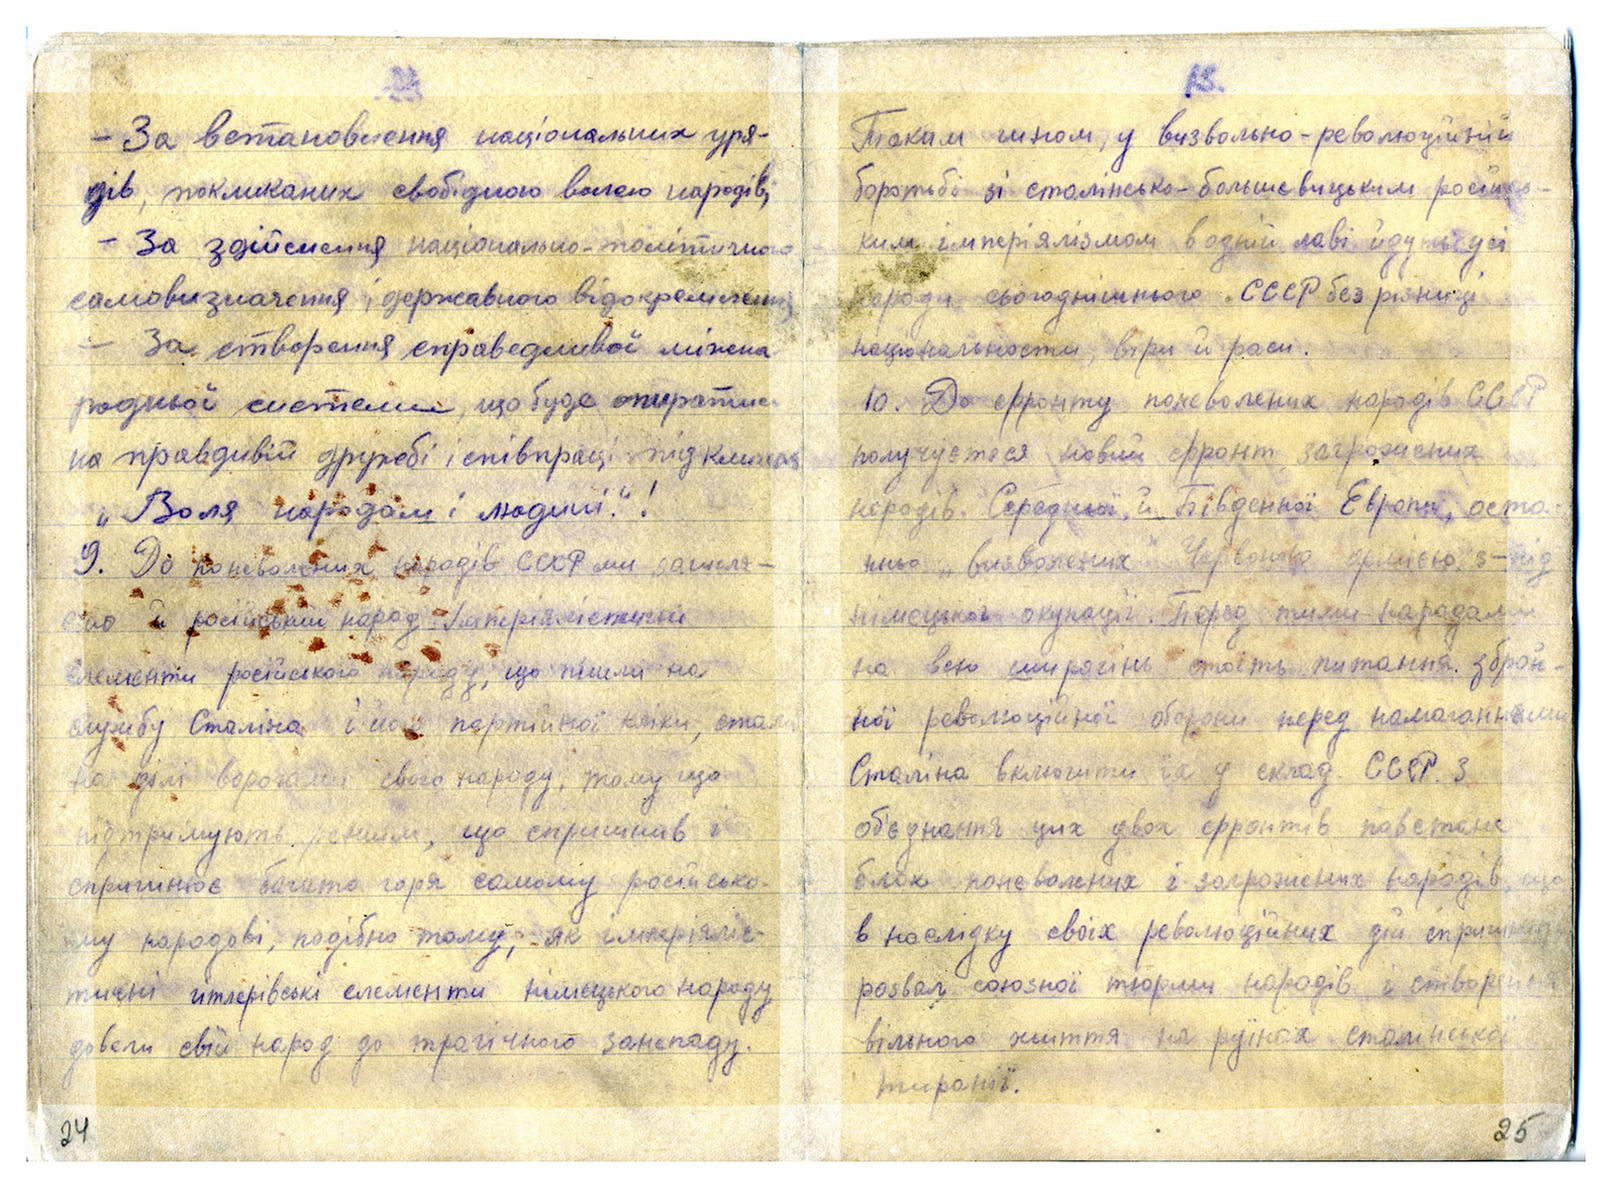 – За встановлення національних уря-
дів, покликаних свобідною волею народів;
– За здійснення національно-політичного
самовизначення і державного відокремлення
– За створення справедливої міжна
родньої системи, що буде опиратись
на правдивій дружбі і співпраці під кличем
„Воля народам і людині“!
9. До поневолених народів СССР ми зачисля-
ємо й російський народ. Імперіялістичні
елементи російського народу, що пішли на
службу Сталіна і його партійної кліки, стали
на ділі ворогами свого народу, тому що
підтримують режим, що спричинив і
спричинює багато горя самому російсько-
му народові, подібно тому, як імперіяліс-
тичні гітлерівські елементи німецького народу
довели свій народ до трагічного занепаду.
24
15.
Таким чином, у визвольно-революційній
боротьбі зі сталінсько-большевицьким російсь-
ким імперіялізмом в одній лаві йдуть усі
народи сьогоднішнього СССР без різниці
національности, віри й раси.
10. До фронту поневолених народів СССР
получується новий фронт загрожених
народів Середньої й Південної Европи, оста-
ньо „визволених“ Червоною армією з-під
німецької окупації. Перед тими народами
на всю широчінь стоїть питання зброй-
ної революційної оборони перед намаганнями
Сталіна включити їх у склад СССР. З
об'єднання цих двох фронтів повстане
блок поневолених і загрожених народів, що
в наслідку своїх революційних дій спричинить
розвал союзної тюрми народів і створення
вільного життя на руїнах сталінської
тиранії.
25